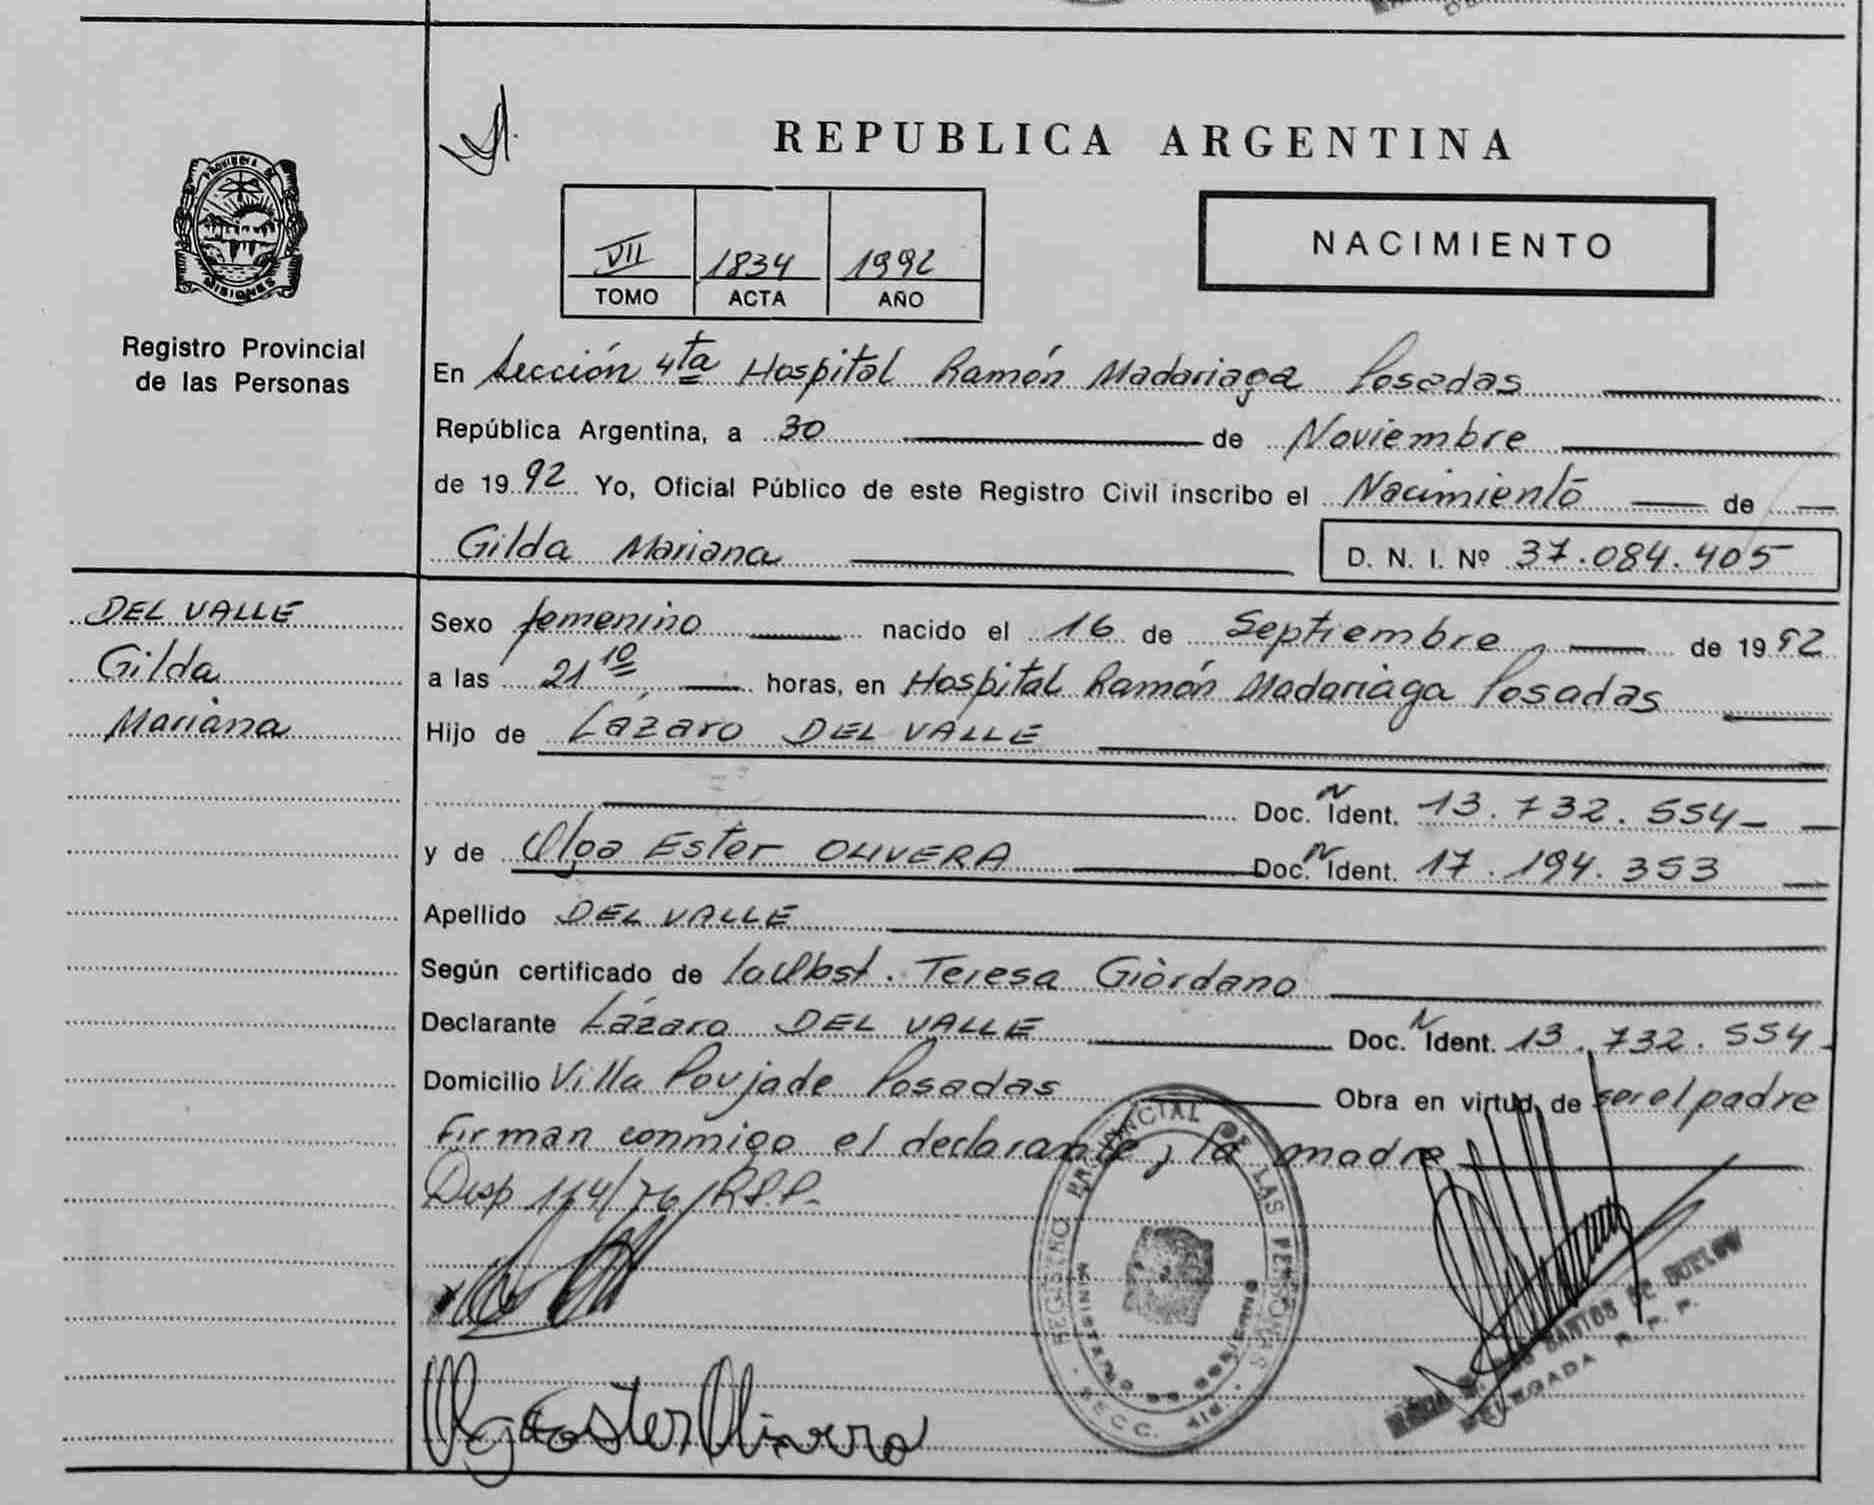 REPUBLICA ARGENTINA
PROVINCIA DE
MISIONES
Registro Provincial
de las Personas
VII 1834 1992
TOMO ACTA AÑO
NACIMIENTO
En Sección 4ta Hospital Ramón Madariaga Posadas
República Argentina, a 30 de Noviembre
de 1992 Yo, Oficial Público de este Registro Civil inscribo el Nacimiento de
Gilda Mariana D. N. I. Nº 37.084.405
DEL VALLE
Gilda
Mariana
Sexo femenino nacido el 16 de Septiembre de 1992
a las 21 10 horas, en Hospital Ramón Madariaga Posadas
Hijo de Lázaro DEL VALLE
Doc. N Ident. 13.732.554
y de Olga Ester OLIVERA Doc. N Ident. 17.194.353
Apellido DEL VALLE
Según certificado de la Obst. Teresa Giòrdano
Declarante Lázaro DEL VALLE Doc. N Ident. 13.732.554
Domicilio Villa Poujade Posadas Obra en virtud de ser el padre
Firman conmigo el declarante y la madre
Disp 114/76 R.P.P.
REGISTRO PROVINCIAL DE LAS PERSONAS
MINISTERIO DE GOBIERNO
SECC. 4ta.
SANTOS DE BUELOW
DELEGADA R. P. P.
Olga Ester Olivera